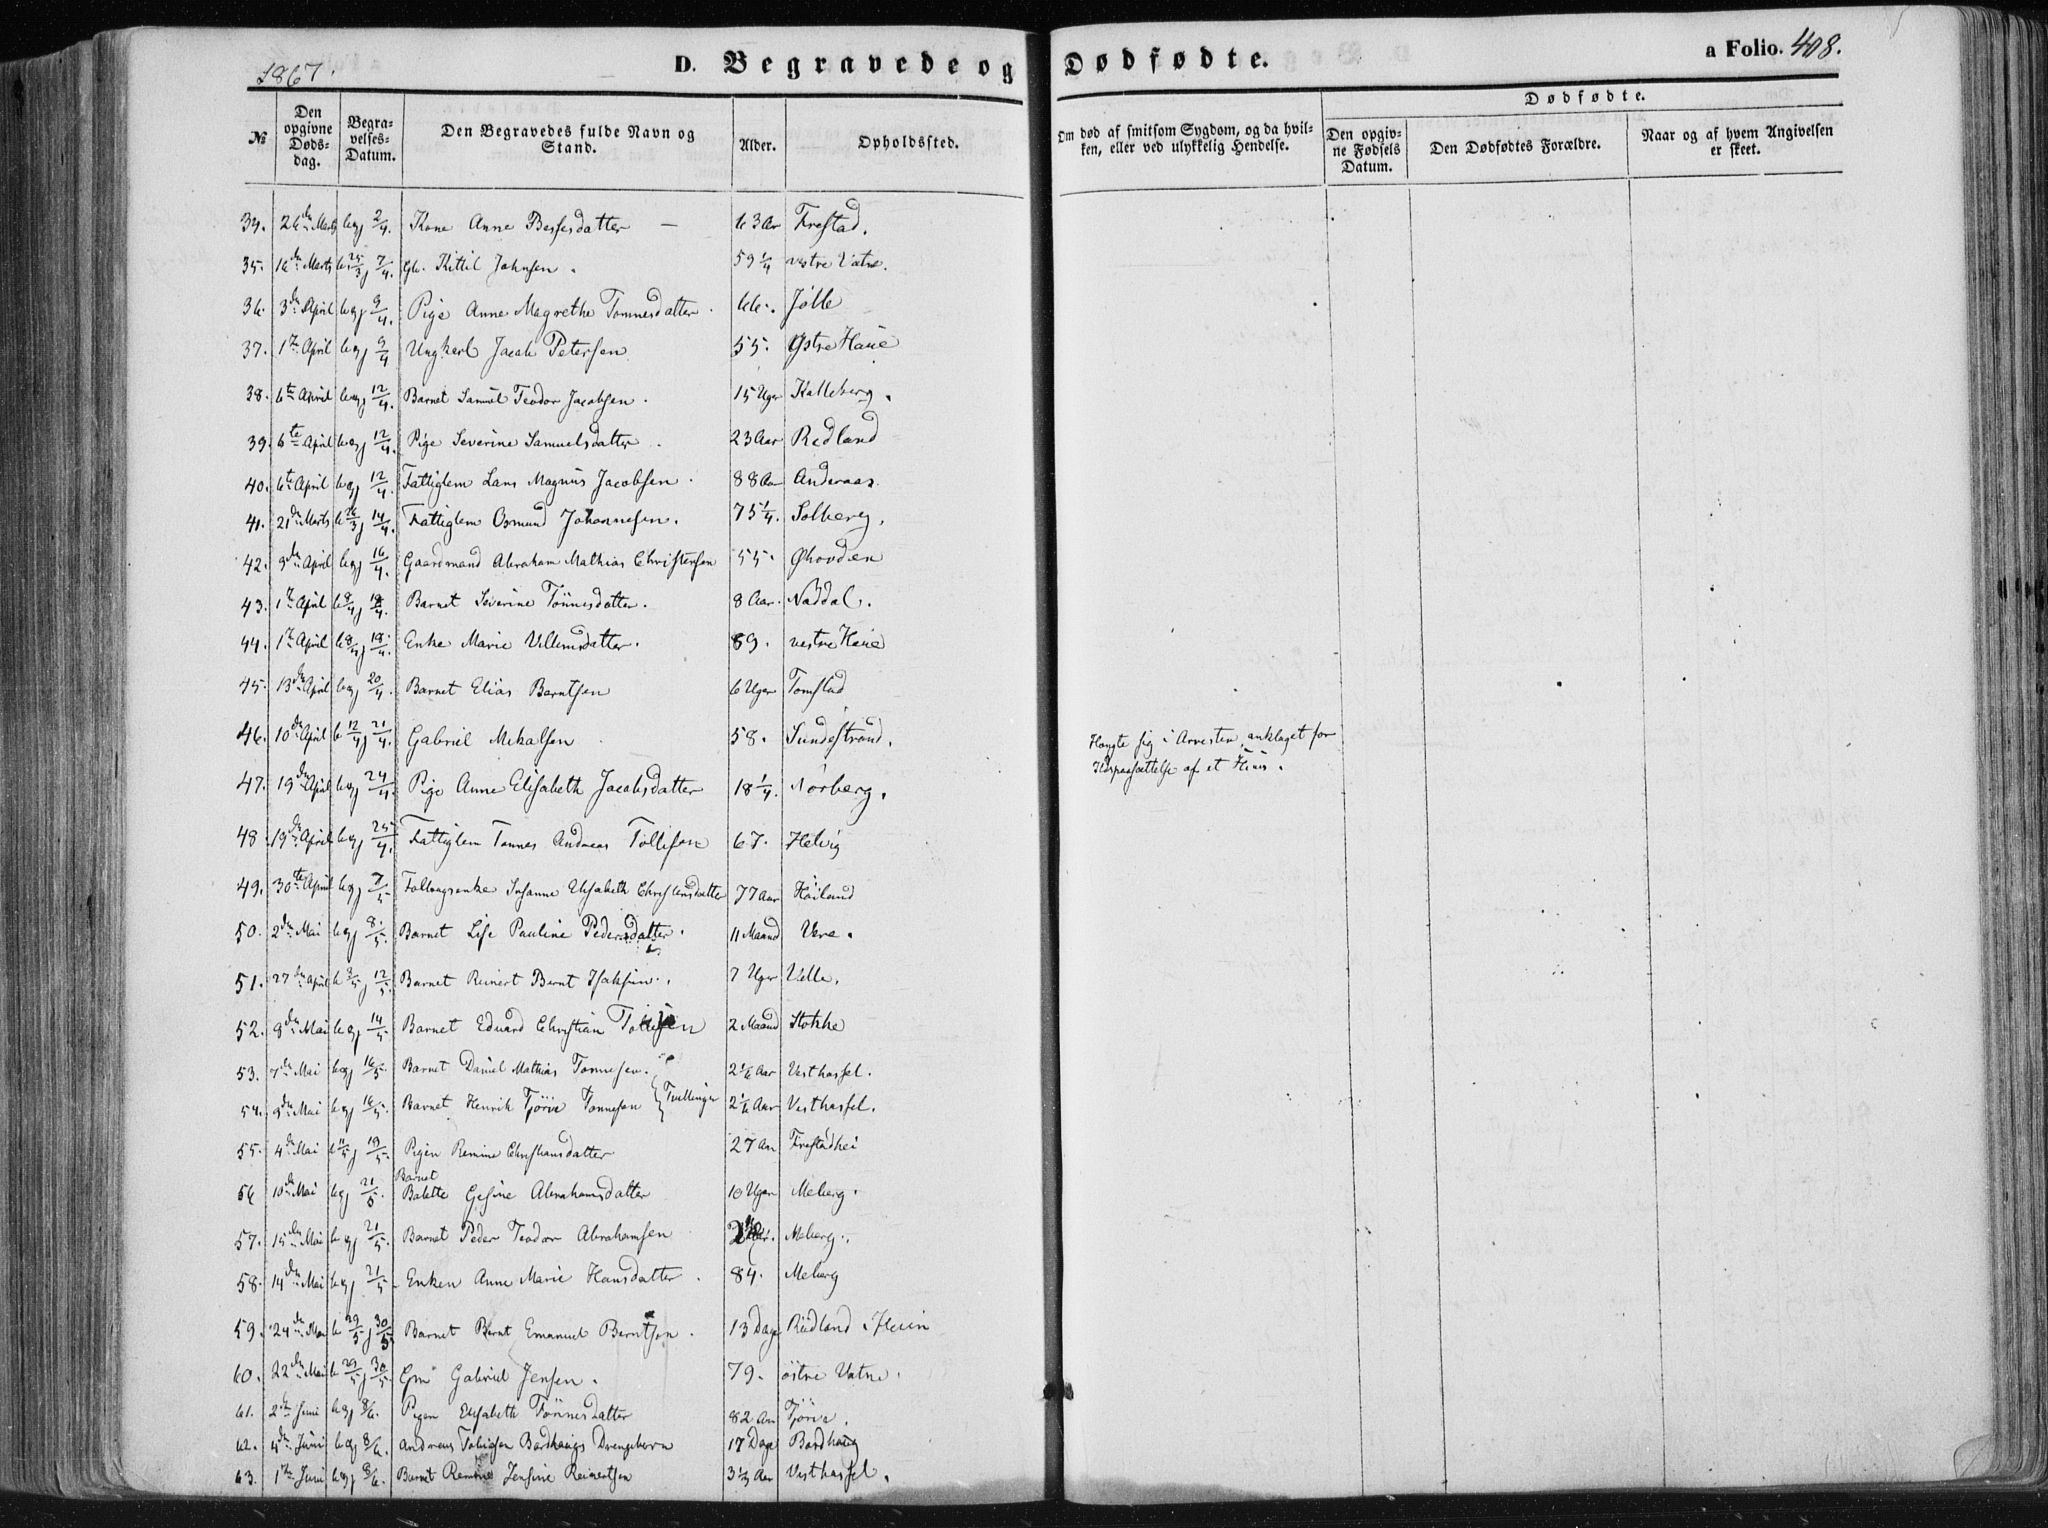 1867.
D. Begravede og Dødfødte.
a Folio. 408.
№
Den opgivne Døds-dag.
Begra-velses-Datum.
Den Begravedes fulde Navn og Stand.
Alder.
Opholdssted.
Om død af smitsom Sygdom, og da hvil-ken, eller ved ulykkelig Hendelse.
Dødfødte.
Den opgiv-ne Fødsels Datum.
Den Dødfødtes Forældre.
Naar og af hvem Angivelsen er skeet.
34. 26de Marts b og j 2/4. Kone Anne Bessesdatter — 63 Aar Frestad.
35. 16de Marts b 25/3 j 7/4. Gb. Kittil Johnsen. 59 1/4 vestre Vatne.
36. 3de April b og j 9/4. Pige Anne Magrethe Tonnesdatter. 66. Jølle
37. 1te April b og j 9/4 Ungkarl Jacob Petersen 55. Østre Haue
38. 6te April b og j 12/4. Barnet Samuel Teodor Jacobsen. 15 Uger Kalleberg.
39. 6te April b og j 12/4. Pige Severine Samuelsdatter. 23 Aar Rødland
40. 6te April b og j 12/4. Fattiglem Lars Magnus Jacobsen. 88 Aar Anderaas.
41. 21de Marts b 26/3 j 14/4. Fattiglem Osmund Johannesen. 75 1/4. Solberg.
42. 9de April b og j 16/4. Gaardmand Abraham Mathias Christensen 55. Øhovden
43. 1te April b 8/4 j 18/4. Barnet Severine Tönnesdatter. 8 Aar. Naddal.
44. 1te April b 8/4 j 18/4. Enke Marie Villumsdatter. 89. vestre Haue
45. 13de April b og j 20/4. Barnet Elias Berntsen 6 Uger Tomstad
46. 10de April b 12/4 j 21/4. Gabriel Mikalsen 58. Sundestrand. Hængte sig i Arresten, anklaget for
Ildspaasættelse af et Huus.
47. 19de April b og j 24/4. Pige Anne Elisabeth Jacobsdatter 18 1/4. Nórberg.
48 19de April b og j 25/4. Fattiglem Tønnes Andreas Tollisen 67. Helvig
49. 30te April b og j 7/5 Følougsenke Susanne Elisabeth Christensdatter 77 Aar Høiland
50. 2den Mai b og j 8/5. Barnet Lise Pauline Pedersdatter. 11 Maaned Vere.
51. 27de April b 8/5 j 12/5. Barnet Reinert Bernt Isaksen. 7 Uger Velle.
52. 8de Mai b og j 14/5. Barnet Eduard Christian Tollisen 2 Maaned Stokke
53. 7de Mai b og j 16/5. Barnet Daniel Mathias Tønnesen. 2 1/6 Aar Vesthassel.
54. 9de Mai b og j 16/5. Barnet Henrik Tjörve Tonnesen } Tvillinger 2 1/6 Aar Vesthassel.
55. 4de Mai b 11/5 j 19/5. Pigen Remine Christiansdatter 27 Aar Frestadhei
Barnet
56 10de Mai b og j 21/5. Balette Gesine Abrahamsdatter 10 Uger Meberg.
57. 15de Mai b og j 21/5. Barnet Peder Teodor Abrahamsen Meberg.
58. 14de Mai b og j 21/5. Enken Anne Marie Hansdatter. 84. Meberg
59. 24de Mai b 29/5 j 30/5 Barnet Bernt Emanuel Berntsen. 13 Dage Rudland i Heien
60. 22de Mai b 29/5 j 30/5 Gabriel Jensen. 79. østre Vatne.
61. 2den Juni b og j 8/6. Pigen Elisabeth Tönnesdatter 82 Aar Tjörve.
62. 4de Juni b og j 8/6. Andreas Tobiasen Bordhaugs Drengebarn 17 Dage Bordhaug
63. 1te Juni b og j 8/6. Barnet Remine Jensine Reinertsen 3 1/3 Aar Vesthassel.